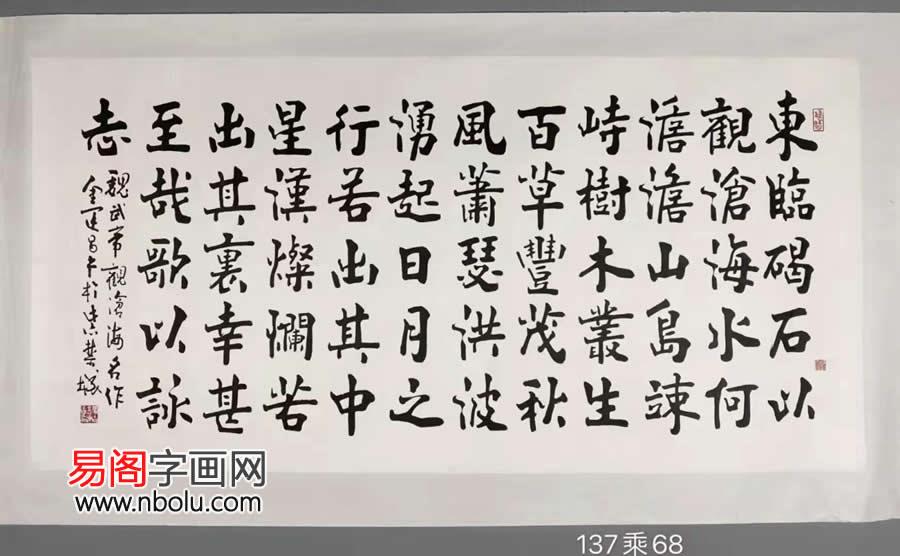 東臨碣石以
觀滄海水何
澹澹山島竦
峙樹木叢生
百草豐茂秋
風蕭瑟洪波
湧起日月之
行若出其中
星漢燦爛若
出其裏幸甚
至哉歌以詠
志
魏武帝觀滄海名作
金運昌
易阁字画网
www.nbolu.com
137乘68